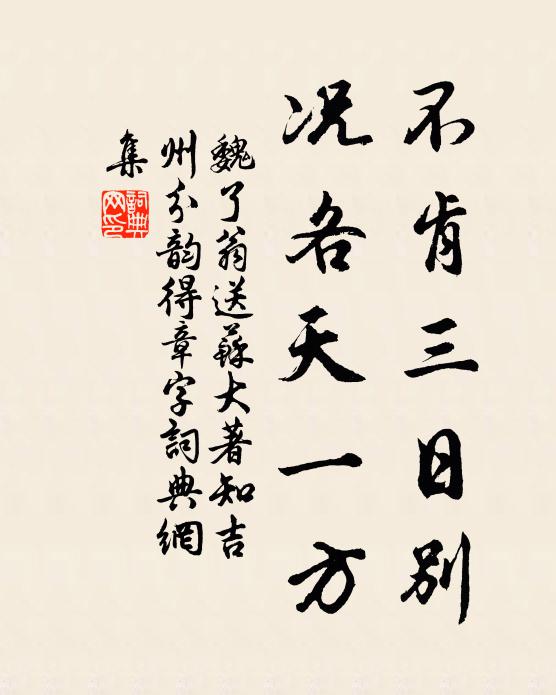 不肯三日别
况各天一方
魏了翁送蘇大著知吉
州分韵得章字詞典網
集
詞典网印